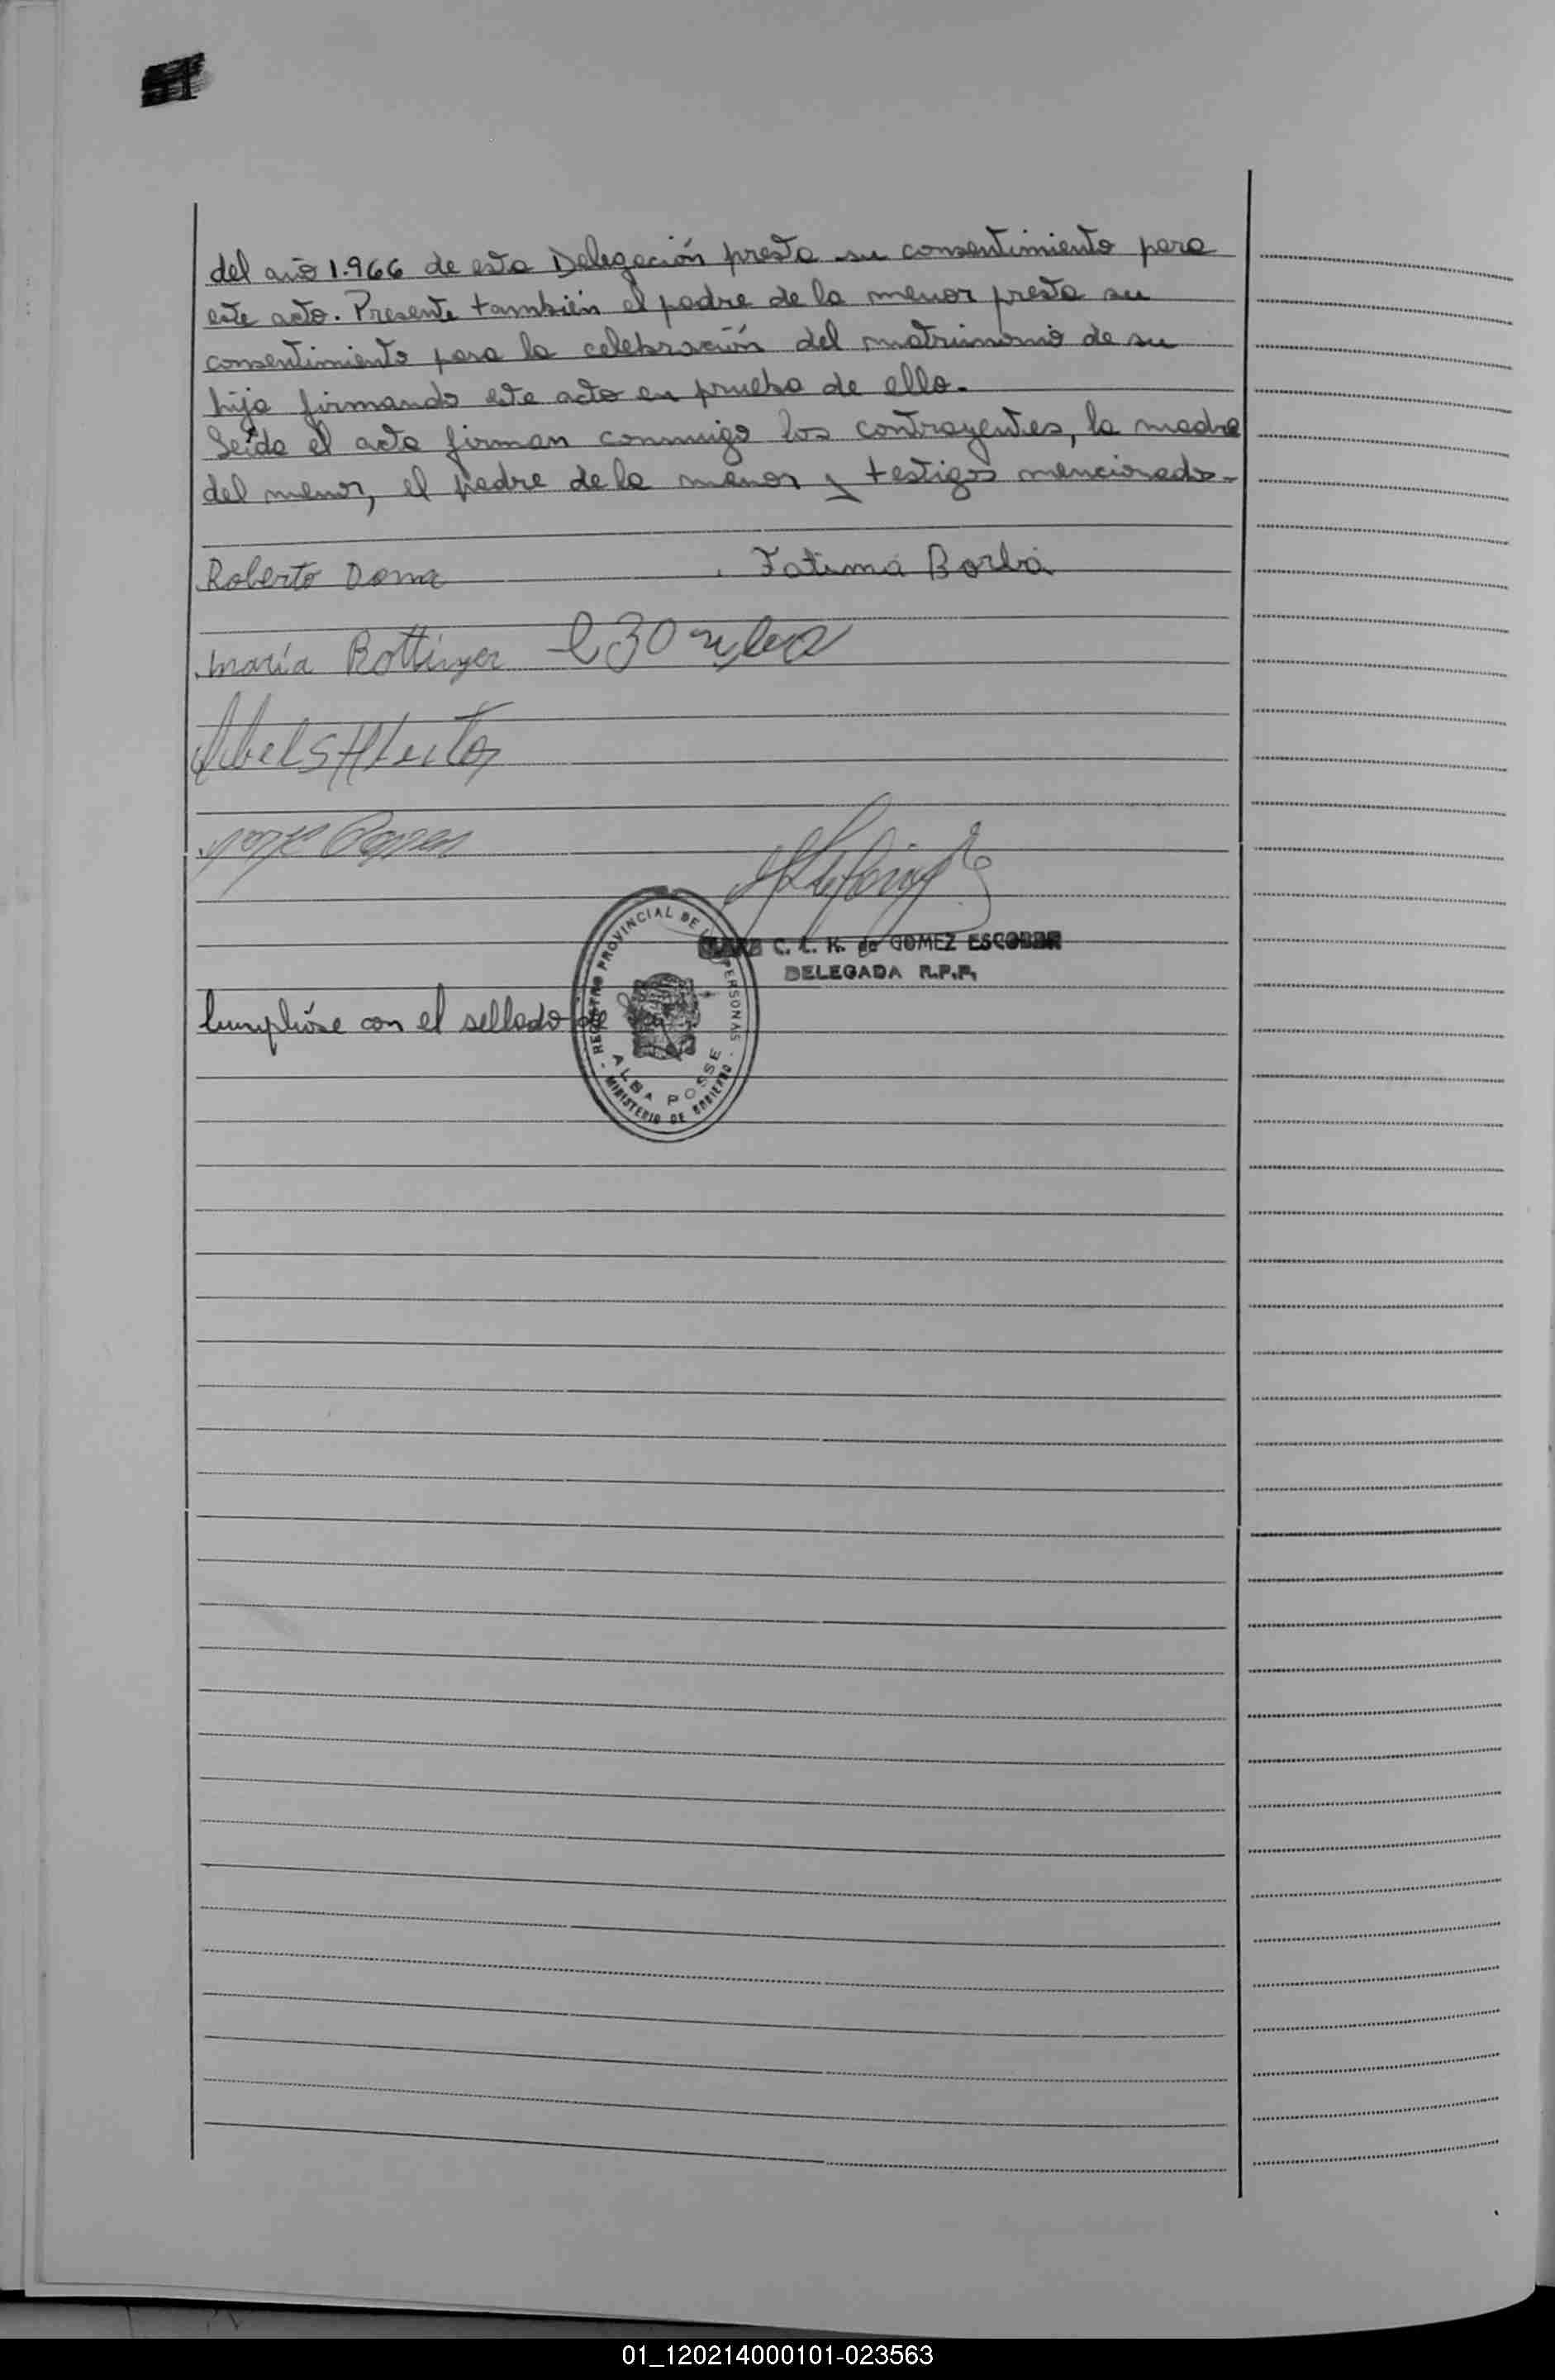 del año 1.966 de esta Delegación presta su consentimiento para
este acto. Presente también el padre de la menor presta su
consentimiento para la celebración del matrimonio de su
hija firmando este acto en prueba de ello.
Leída el acta firman conmigo los contrayentes, la madre
del menor, el padre de la menor y testigos mencionados-
Roberto Doma Fatima Borba
maría Bottinger
REGISTRO PROVINCIAL DE LAS PERSONAS
C. L. K. de GOMEZ ESCOBAR
DELEGADA R.P.P.
Cumplióse con el sellado de
ALBA POSSE
MINISTERIO DE GOBIERNO
01_120214000101-023563